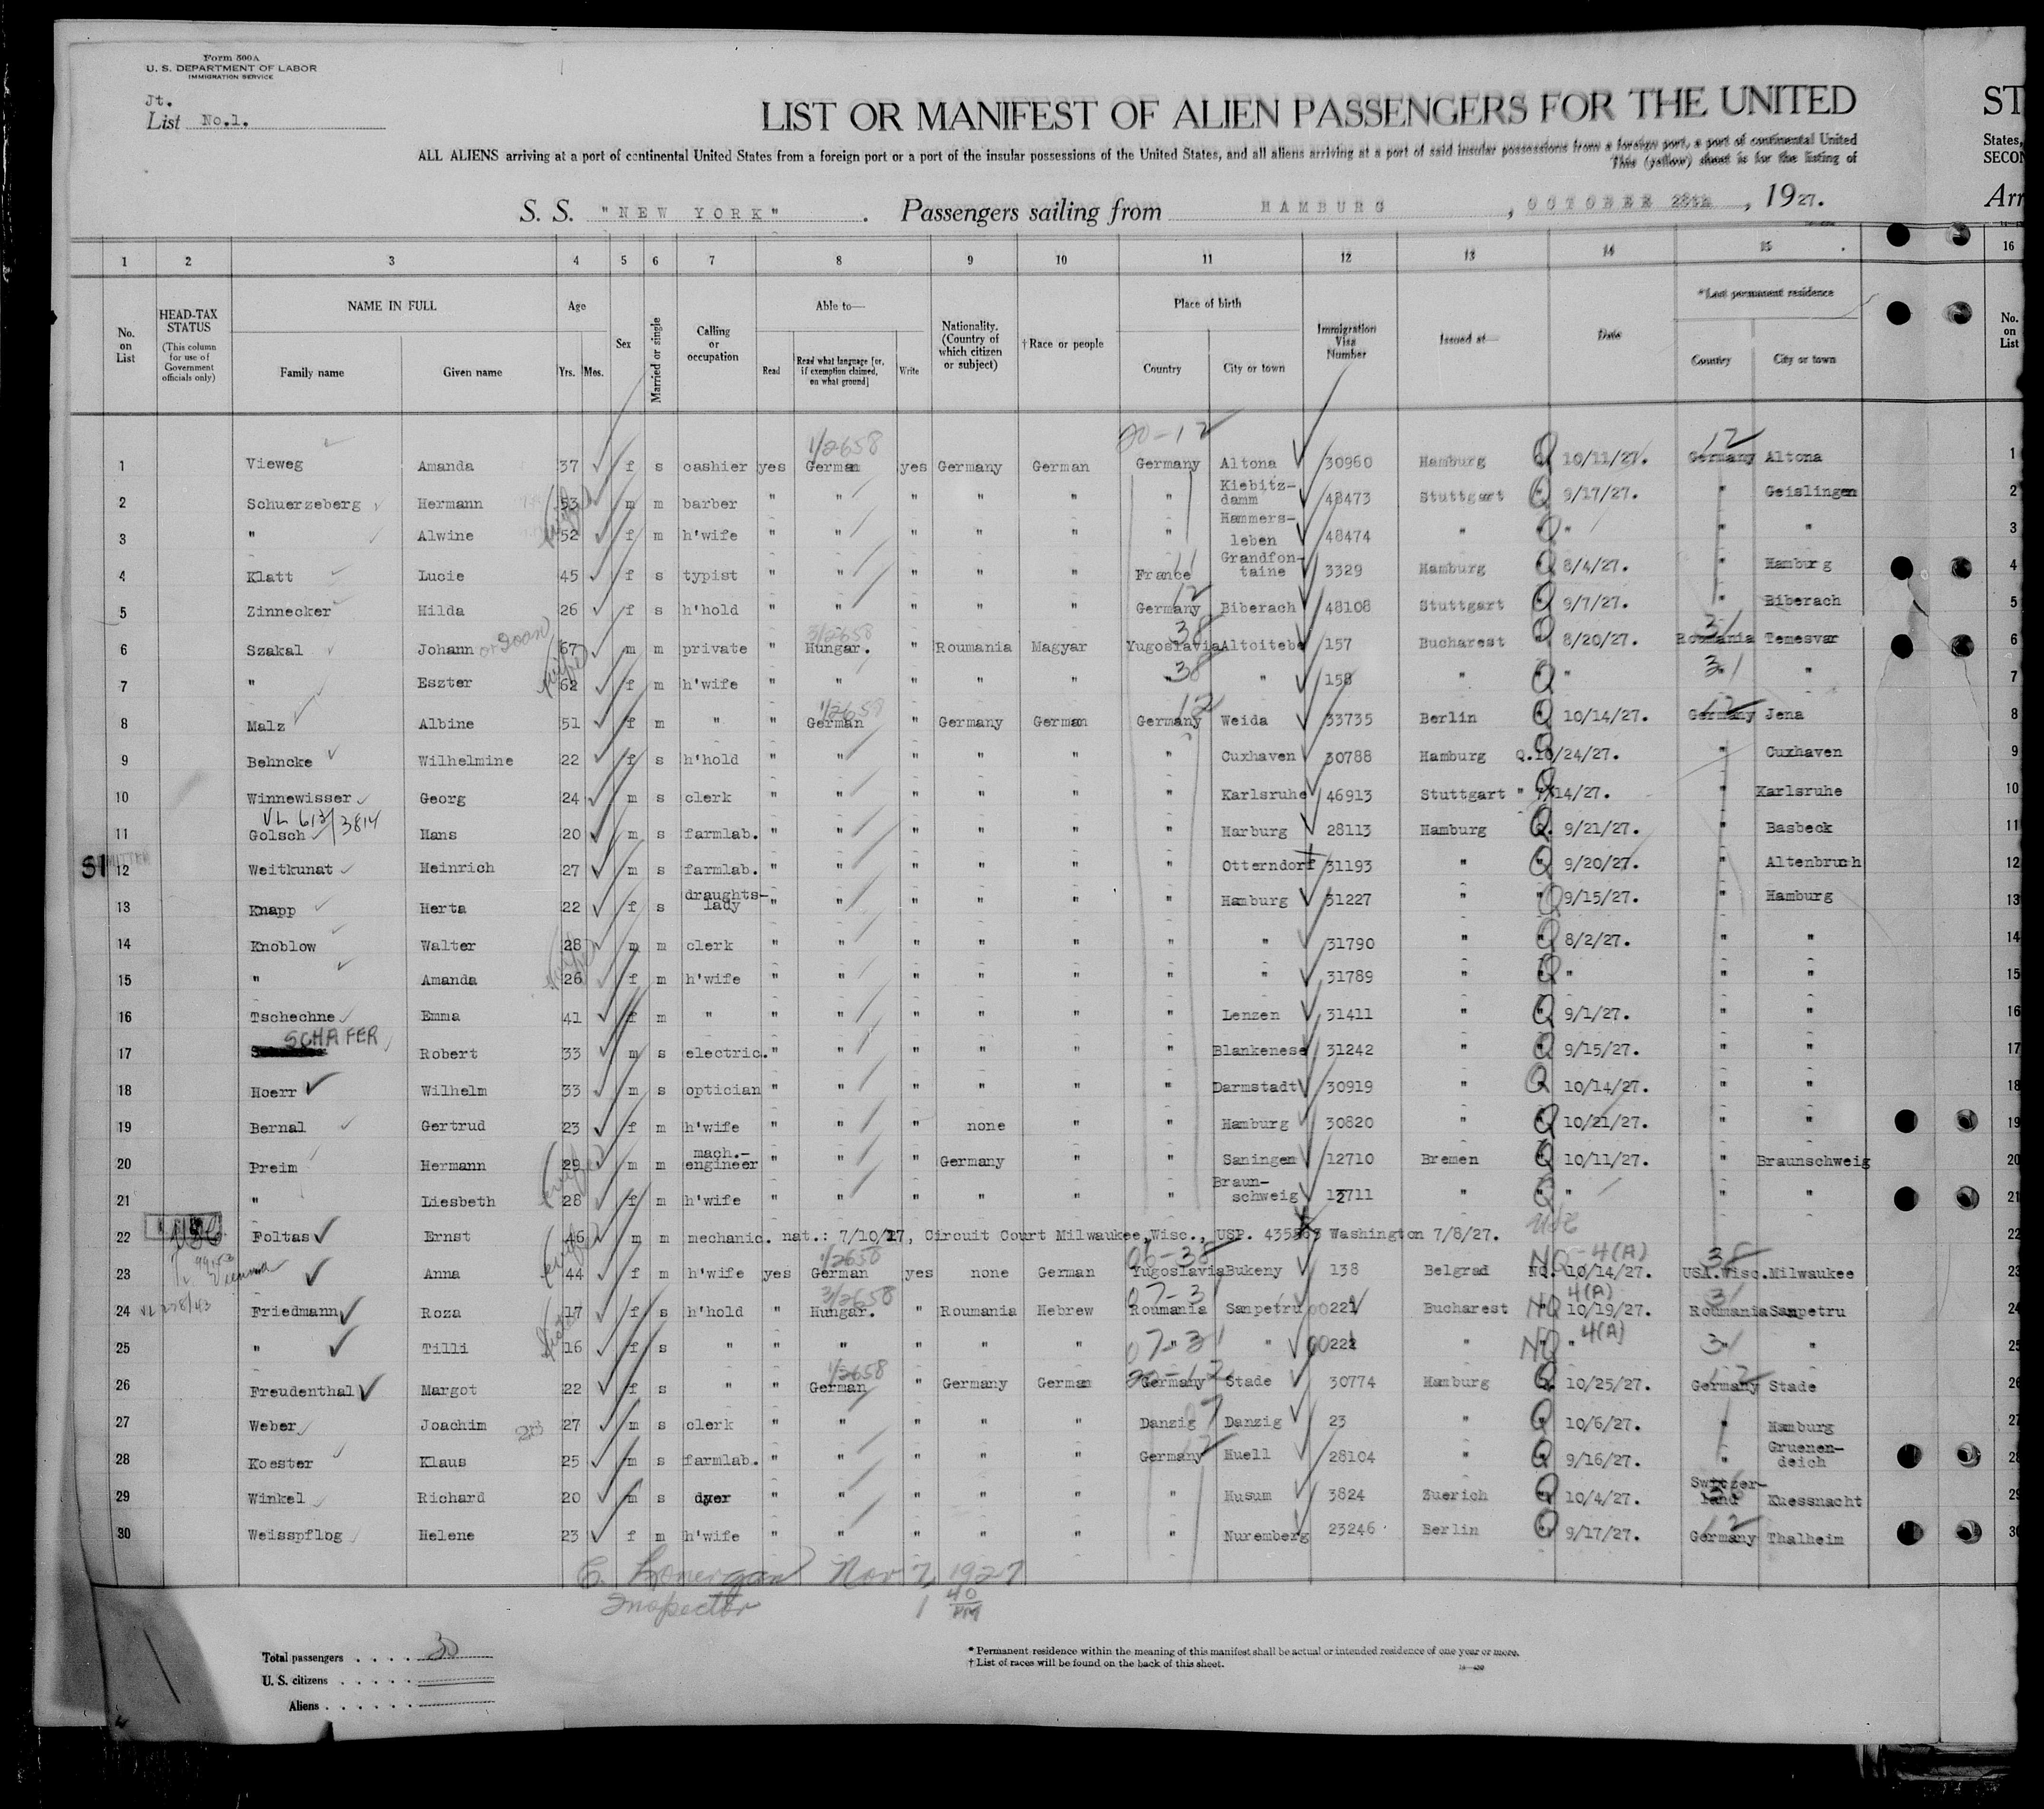 Form 500A
U. S. DEPARTMENT OF LABOR
IMMIGRATION SERVICE
Jt.
List No.1.
LIST OR MANIFEST OF ALIEN PASSENGERS FOR THE UNITED
ST
ALL ALIENS arriving at a port of continental United States from a foreign port or a port of the insular possessions of the United States, and all aliens arriving at a port of said insular possessions from a foreign port, a port of continental United
States,
This (yellow) sheet is for the listing of
SECON
S. S. "NEW YORK". Passengers sailing from HAMBURG, OCTOBER 28th, 1927.
Arr
1 2 3 4 5 6 7 8 9 10 11 12 13 14 15 16
No. on List
HEAD-TAX STATUS (This column for use of Government officials only)
NAME IN FULL
Family name Given name
Age Yrs. Mos.
Sex
Married or single
Calling or occupation
Able to—
Read Read what language [or, if exemption claimed, on what ground] Write
Nationality. (Country of which citizen or subject)
†Race or people
Place of birth
Country City or town
Immigration Visa Number
Issued at—
Date
*Last permanent residence
Country City or town
No. on List
20-12 12
1/2658
1 Vieweg Amanda 37 f s cashier yes German yes Germany German Germany Altona 30960 Hamburg Q 10/11/27. Germany Altona 1
2 Schuerzeberg Hermann 53 m m barber " " " " " " Kiebitz-damm 48473 Stuttgart Q 9/17/27. " Geislingen 2
3 " Alwine 52 f m h'wife " " " " " " Hammers-leben 48474 " Q " " " 3
4 Klatt Lucie 45 f s typist " " " " " France Grandfon-taine 3329 Hamburg Q 8/4/27. " Hamburg 4
5 Zinnecker Hilda 26 f s h'hold " " " " " Germany Biberach 48108 Stuttgart Q 9/7/27. " Biberach 5
3/2658 38 31
6 Szakal Johann or Joan 67 m m private " Hungar. " Roumania Magyar Yugoslavia Altoitebe 157 Bucharest " 8/20/27. Roumania Temesvar 6
7 " Eszter wife 62 f m h'wife " " " " " 38 " 158 " Q " 31 " 7
1/2658 12 12
8 Malz Albine 51 f m " " German " Germany German Germany Weida 33735 Berlin Q 10/14/27. Germany Jena 8
9 Behncke Wilhelmine 22 f s h'hold " " " " " " Cuxhaven 30788 Hamburg Q.10/24/27. " Cuxhaven 9
10 Winnewisser Georg 24 m s clerk " " " " " " Karlsruhe 46913 Stuttgart " 7/14/27. " Karlsruhe 10
VL 613/3814
11 Golsch Hans 20 m s farmlab. " " " " " " Harburg 28113 Hamburg Q. 9/21/27. " Basbeck 11
SI ADMITTED
12 Weitkunat Heinrich 27 m s farmlab. " " " " " " Otterndorf 31193 " Q 9/20/27. " Altenbruch 12
13 Knapp Herta 22 f s draughts-lady " " " " " " Hamburg 31227 " Q 9/15/27. " Hamburg 13
14 Knoblow Walter 28 m m clerk " " " " " " " 31790 " Q 8/2/27. " " 14
15 " Amanda 26 f m h'wife " " " " " " " 31789 " Q " " " 15
16 Tschechne Emma 41 f m " " " " " " " Lenzen 31411 " Q 9/1/27. " " 16
17 SCHAFER Robert 33 m s electric. " " " " " " Blankenese 31242 " Q 9/15/27. " " 17
18 Hoerr Wilhelm 33 m s optician " " " " " " Darmstadt 30919 " Q 10/14/27. " " 18
19 Bernal Gertrud 23 f m h'wife " " " none " " Hamburg 30820 " Q 10/21/27. " " 19
20 Preim Hermann 29 m m mach.-engineer " " " Germany " " Saningen 12710 Bremen Q 10/11/27. " Braunschweig 20
21 " Liesbeth wife 28 f m h'wife " " " " " " Braun-schweig 12711 " Q " " " 21
22 USC Foltas Ernst 46 m m mechanic. nat.: 7/10/17, Circuit Court Milwaukee, Wisc., USP. 435563 Washington 7/8/27. USC 22
1/2658 06-38 NQ-4(A) 38
23 Anna wife 44 f m h'wife yes German yes none German Yugoslavia Bukeny 138 Belgrad NQ. 10/14/27. USA.Wisc. Milwaukee 23
3/2658 07-31 4(A) 31
24 Friedmann Roza 17 f s h'hold " Hungar. " Roumania Hebrew Roumania Sanpetru 00221 Bucharest NQ 10/19/27. Roumania Sanpetru 24
25 " Tilli sister 16 f s " " " " " " 07-31 " 00222 " NQ " 4(A) 31 " 25
1/2658 20-12 12
26 Freudenthal Margot 22 f s " " German " Germany German Germany Stade 30774 Hamburg Q 10/25/27. Germany Stade 26
27 Weber Joachim 27 m s clerk " " " " " Danzig Danzig 23 " Q 10/6/27. " Hamburg 27
28 Koester Klaus 25 m s farmlab. " " " " " Germany Huell 28104 " Q 9/16/27. " Gruenen-deich 28
29 Winkel Richard 20 m s dyer " " " " " " Husum 3824 Zuerich Q 10/4/27. Switzer-land Kuessnacht 29
30 Weisspflog Helene 23 f m h'wife " " " " " " Nuremberg 23246 Berlin Q 9/17/27. Germany Thalheim 30
C. Lonergan Nov 7, 1927
Inspector 1 40 PM
Total passengers . . . . 30
U. S. citizens . . . . .
Aliens . . . . .
* Permanent residence within the meaning of this manifest shall be actual or intended residence of one year or more.
† List of races will be found on the back of this sheet.